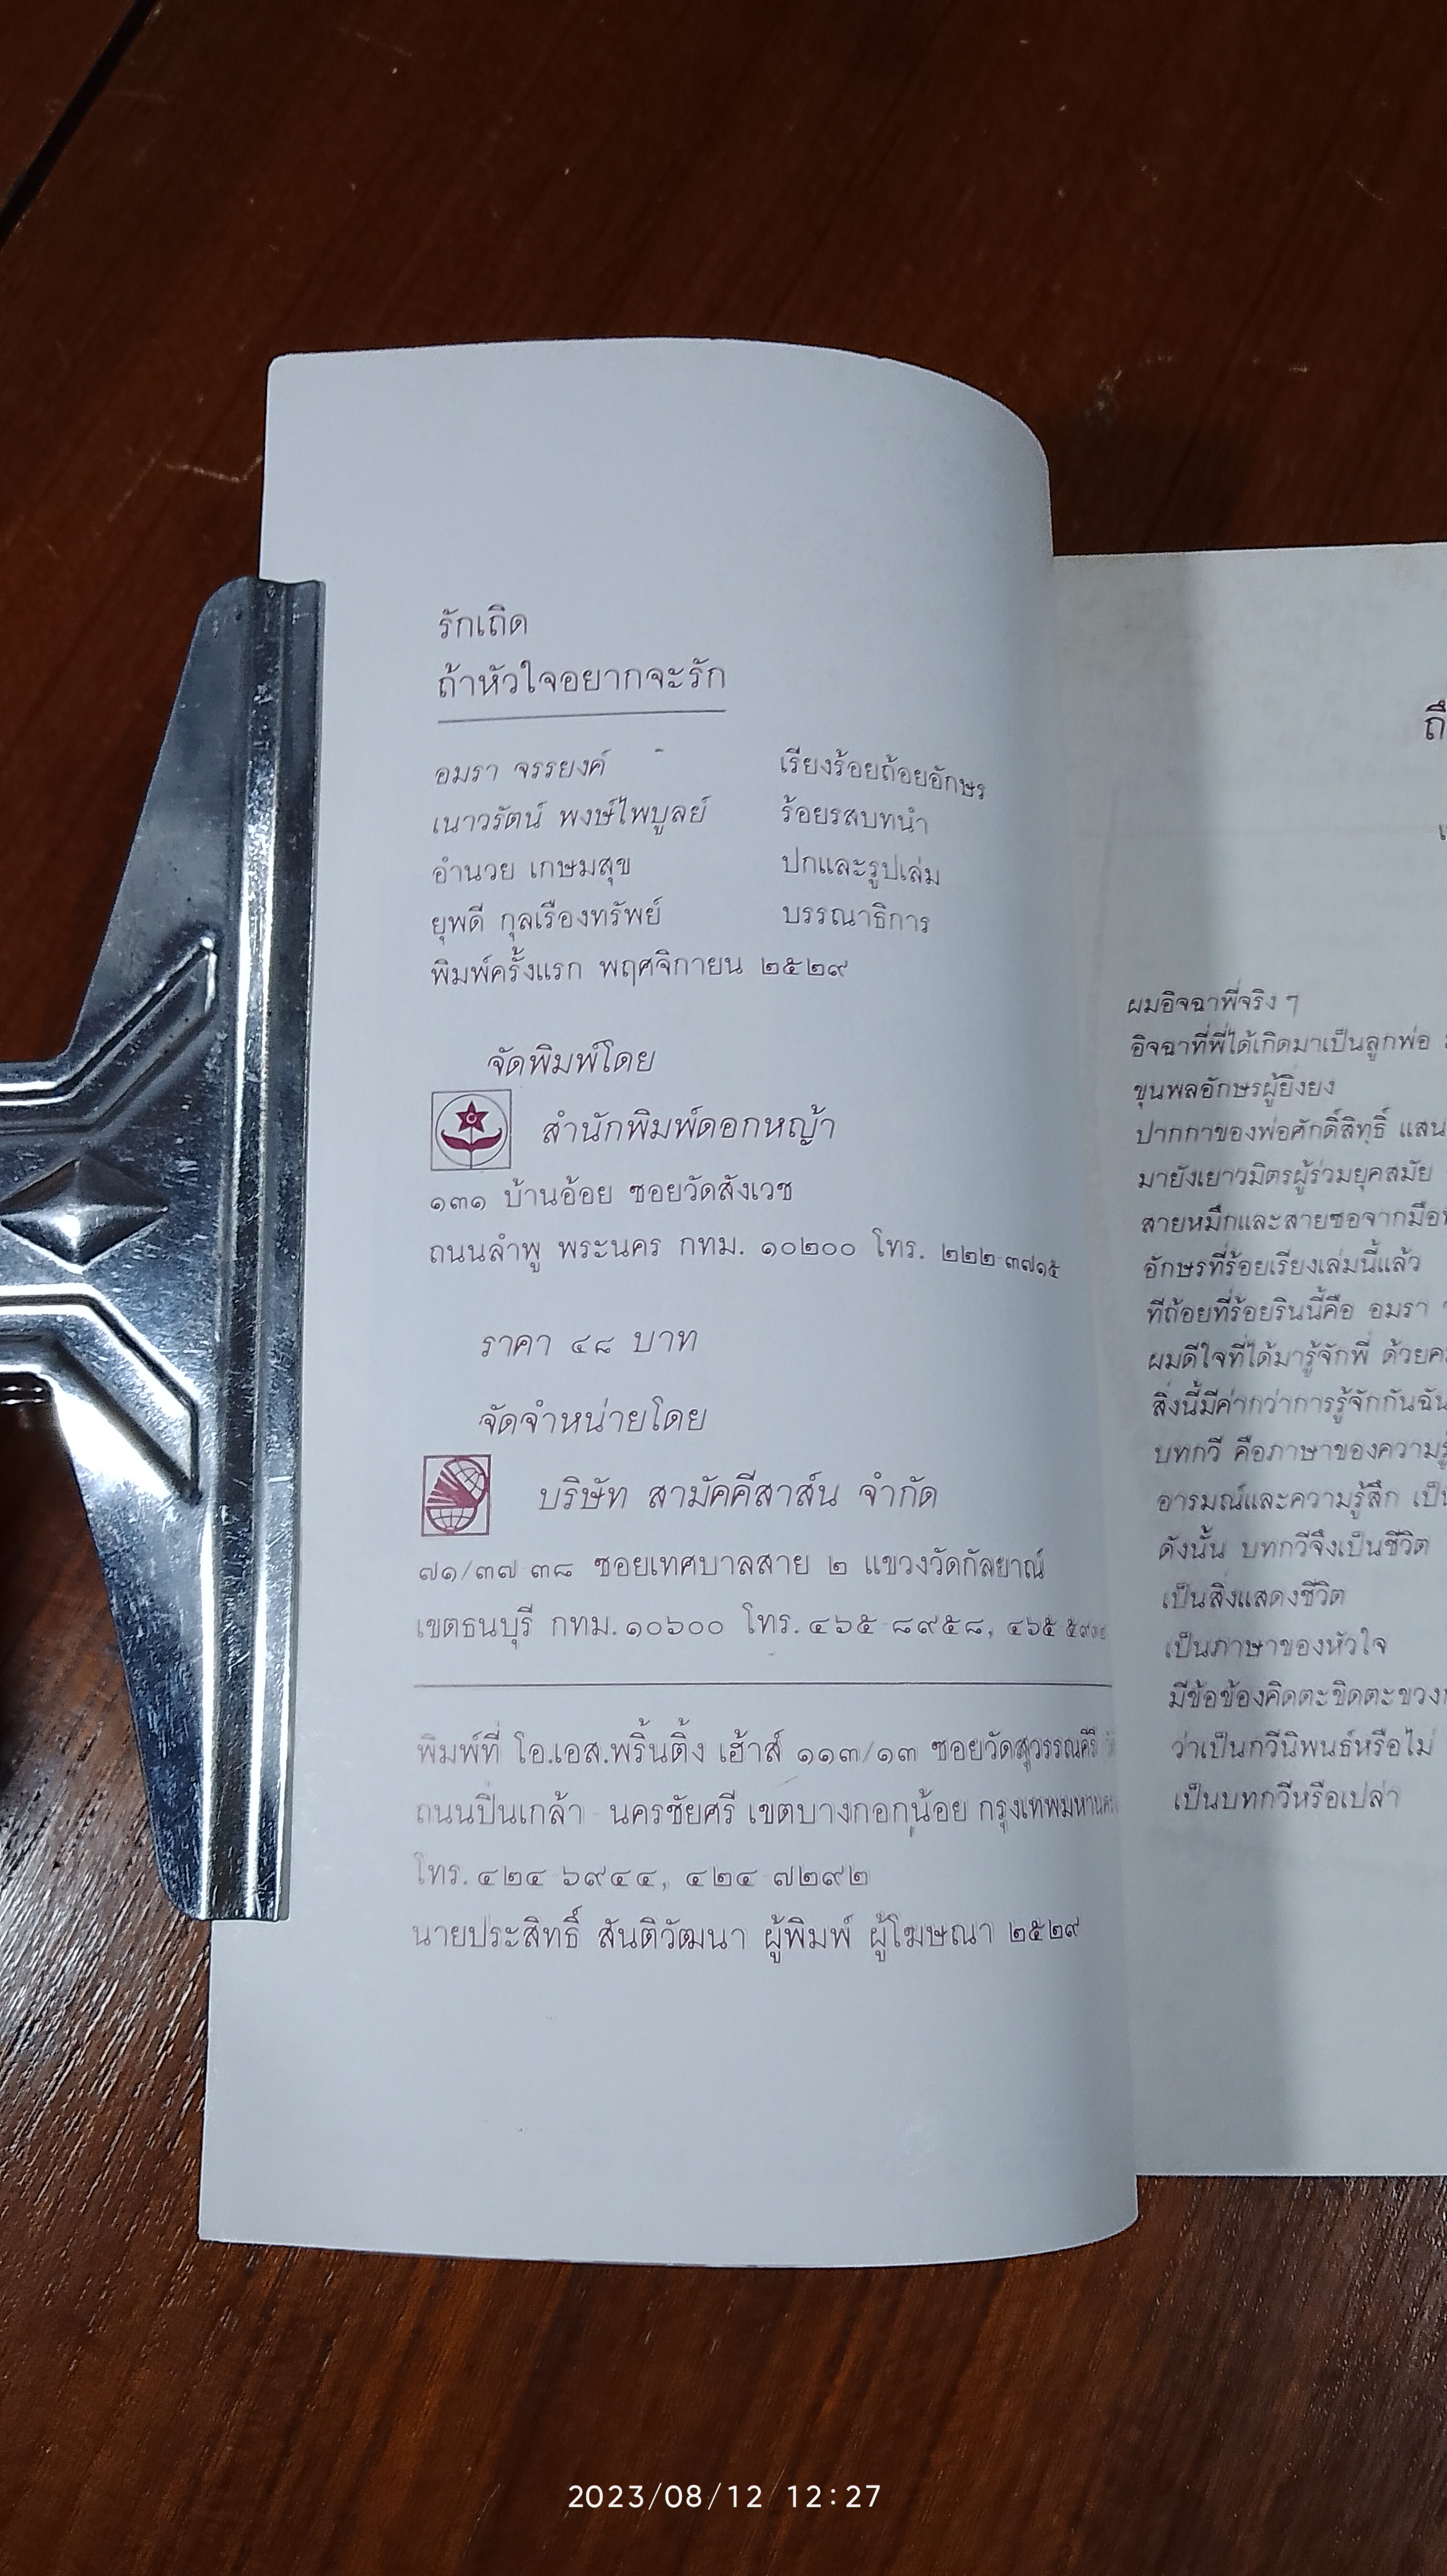 รักเถิด
ถ้าหัวใจอยากจะรัก
อมรา จรรยงค์ เรียงร้อยถ้อยอักษร
เนาวรัตน์ พงษ์ไพบูลย์ ร้อยรสบทนำ
อำนวย เกษมสุข ปกและรูปเล่ม
ยุพดี กุลเรืองทรัพย์ บรรณาธิการ
พิมพ์ครั้งแรก พฤศจิกายน ๒๕๒๙
จัดพิมพ์โดย
สำนักพิมพ์ดอกหญ้า
๑๓๑ บ้านอ้อย ซอยวัดสังเวช
ถนนลำพู พระนคร กทม. ๑๐๒๐๐ โทร. ๒๒๒-๓๗๑๕
ราคา ๔๘ บาท
จัดจำหน่ายโดย
บริษัท สามัคคีสาส์น จำกัด
๗๑/๓๗-๓๘ ซอยเทศบาลสาย ๒ แขวงวัดกัลยาณ์
เขตธนบุรี กทม. ๑๐๖๐๐ โทร. ๔๖๕-๘๙๕๘,
พิมพ์ที่ โอ.เอส.พริ้นติ้ง เฮ้าส์ ๑๑๓/๑๓ ซอยวัดสุวรรณคีรี
ถนนปิ่นเกล้า - นครชัยศรี เขตบางกอกน้อย กรุงเทพมหานคร
โทร. ๔๒๔-๖๙๔๔, ๔๒๔-๗๒๙๒
นายประสิทธิ์ สันติวัฒนา ผู้พิมพ์ ผู้โฆษณา ๒๕๒๙
ผมอิจฉาพี่จริง ๆ
อิจฉาที่พี่ได้เกิดมาเป็นลูกพ่อ
ขุนพลอักษรผู้ยิ่งยง
ปากกาของพ่อศักดิ์สิทธิ์
มายังเยาวมิตรผู้ร่วมยุคสมัย
สายหมึกและสายซอจากมือ
อักษรที่ร้อยเรียงเล่มนี้แล้ว
ทีถ้อยที่ร้อยรินนี้คือ อมรา
ผมดีใจที่ได้มารู้จักพี่
สิ่งนี้มีค่ากว่าการรู้จักกัน
บทกวี คือภาษาของ
อารมณ์และความรู้สึก
ดังนั้น บทกวีจึงเป็นชีวิต
เป็นสิ่งแสดงชีวิต
เป็นภาษาของหัวใจ
มีข้อข้องคิดตะขิดตะขวง
ว่าเป็นกวีนิพนธ์หรือไม่
เป็นบทกวีหรือเปล่า
2023/08/12 12:27